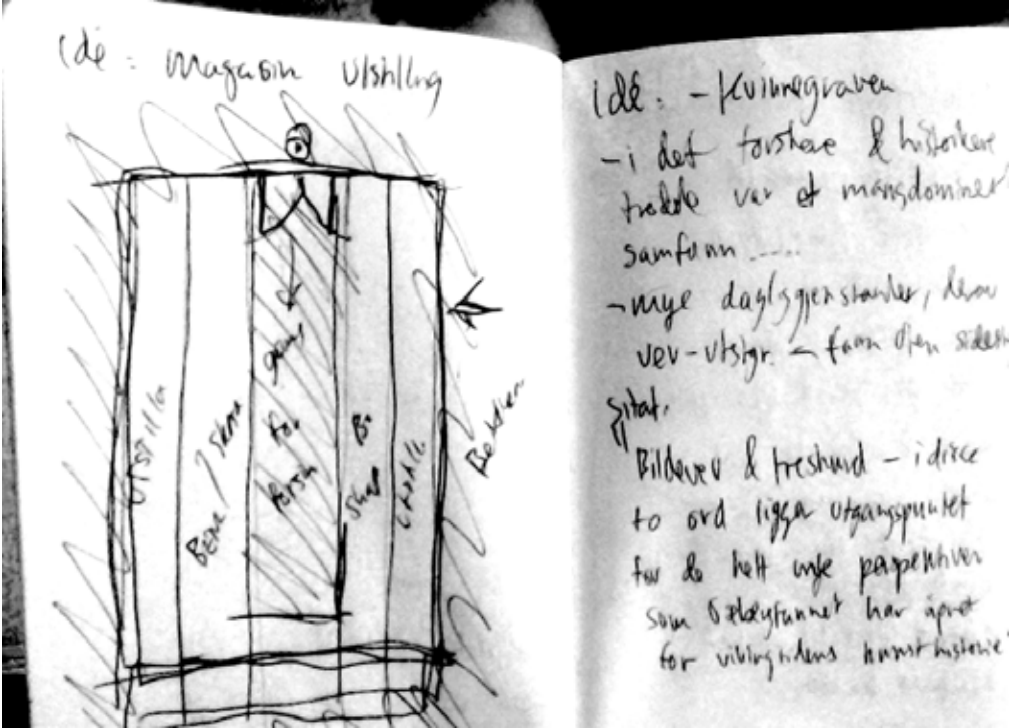 idé: magasin utstilling
gang
for
person
Utstilla
Bene / Skru
Bi
idé: - Kvinnegraven
- i det forskere & historikere
trodde var et mangdominer
samfunn .....
- mye dagliggjenstander, derav
vev-utstyr. - fann
Sitat.
"Bildevev & treskurd - i disse
to ord ligger utgangspunktet
for de helt nye perspektiver
som Osebergfunnet har åpnet
for vikingtidens kunsthistorie"